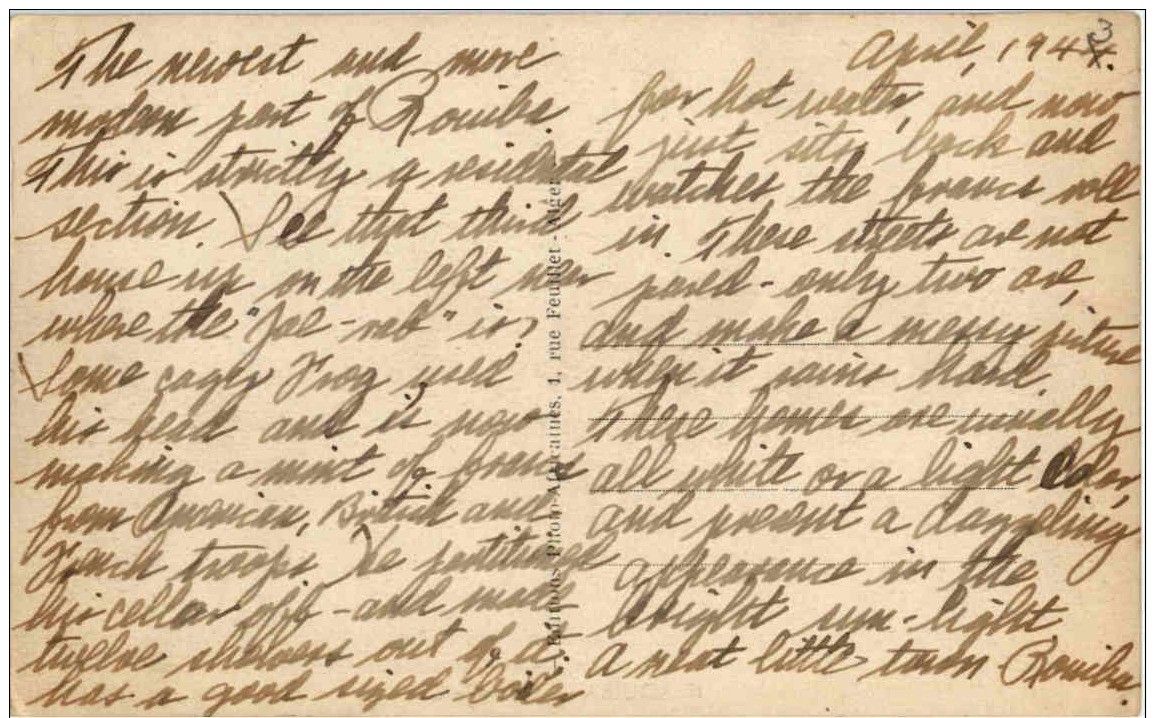 The newest and more
modern part of Rouiba.
This is strictly a residental
section. See that third
house up on the left near
where the "Jee-neb" is,
Some cagey Frog used
his head and is now
making a mint of francs
from American, British and
French troops. He partitioned
his cellar off - and made
twelve showers out of it,
has a good sized boiler
April, 1943.
for hot water, and now
just sits back and
watches the francs roll
in. These streets are not
paved - only two are,
and make a messy picture
when it rains hard.
These homes are usually
all white or a light color,
and present a dazzeling
appearance in the
bright sun-light.
A neat little town Rouiba.
Editions Photo-Africaines, 1, rue Feuillet - Alger